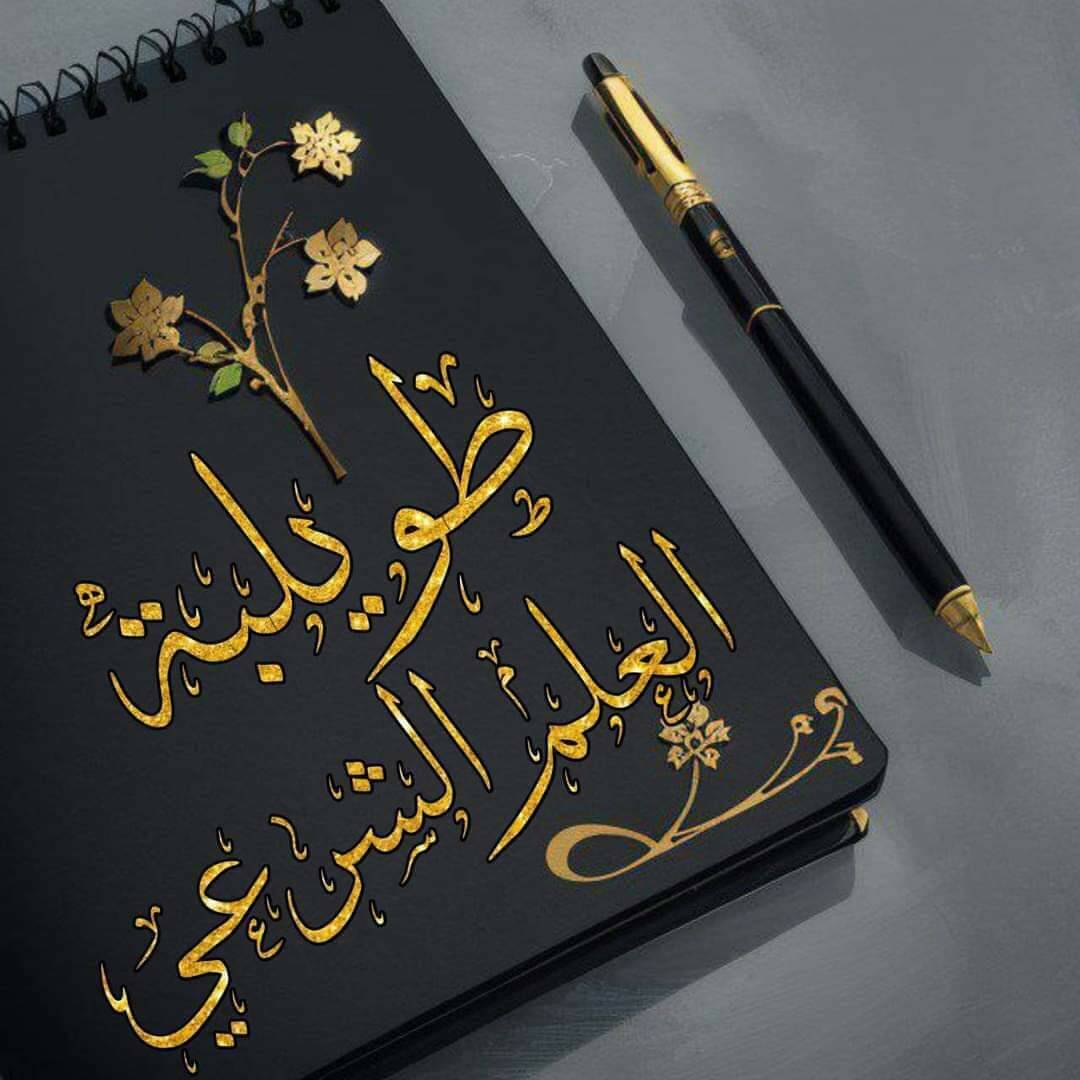 طويلبة
العلم الشرعي